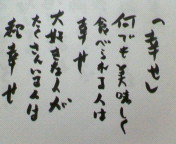 「幸せ」
何でも美味しく
食べられる人は
幸せ
大好きな人が
たくさんいる人は
超幸せ